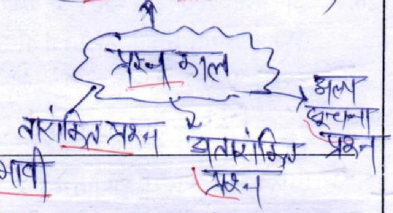 प्रश्न काल
तारांकित प्रश्न
अतारांकित
प्रश्न
अल्प
सूचना
प्रश्न